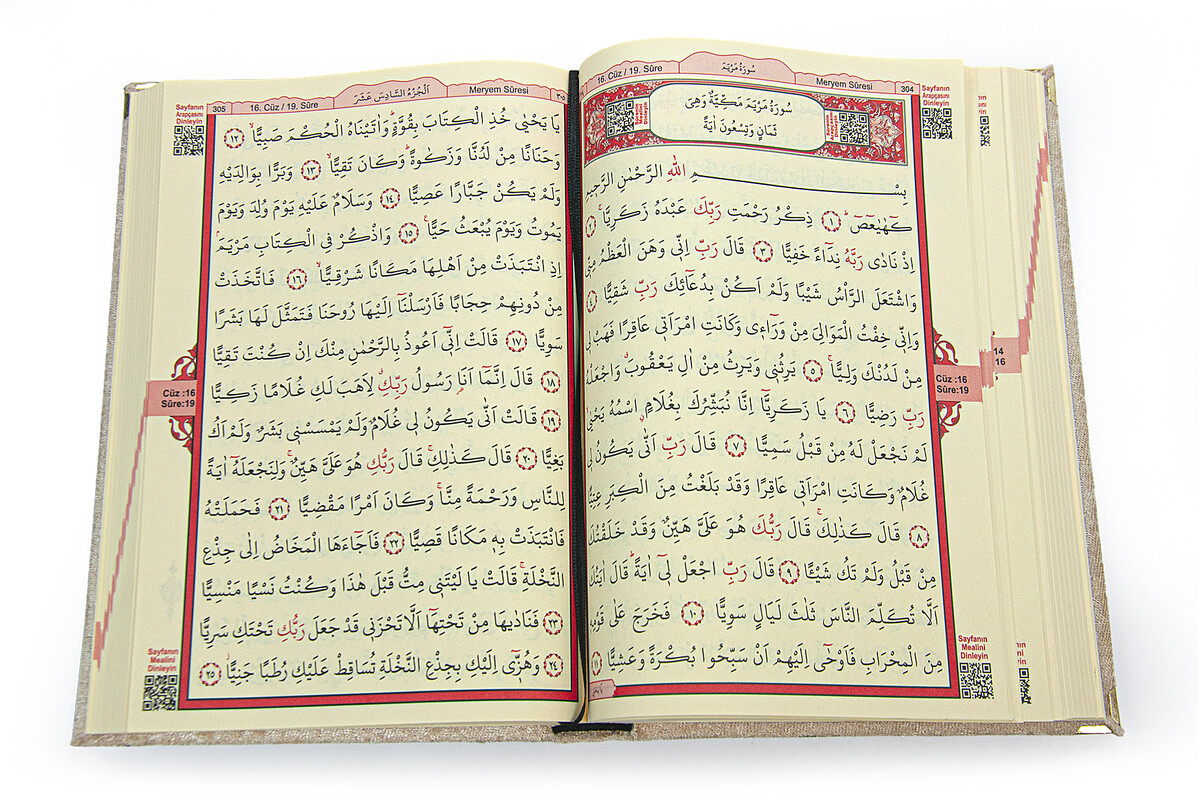 16. Cüz / 19. Sûre
سُورَةُ مَرْيَمَ
Meryem Sûresi
304
سُورَةُ مَرْيَمَ مَكِّيَّةٌ وَهِىَ
ثَمَانٍ وَتِسْعُونَ اٰيَةً
Sayfanın
Arapçasını
Dinleyin
بِسْمِ اللّٰهِ الرَّحْمٰنِ الرَّحِيمِ
كٓهٰيٰعٓصٓ ۚ ﴿١﴾ ذِكْرُ رَحْمَتِ رَبِّكَ عَبْدَهُ زَكَرِيَّا ۚ ﴿٢﴾
اِذْ نَادٰى رَبَّهُ نِدَٓاءً خَفِيًّا ﴿٣﴾ قَالَ رَبِّ اِنّ۪ى وَهَنَ الْعَظْمُ مِنّ۪ى
وَاشْتَعَلَ الرَّاْسُ شَيْبًا وَلَمْ اَكُنْ بِدُعَٓائِكَ رَبِّ شَقِيًّا ﴿٤﴾
وَاِنّ۪ى خِفْتُ الْمَوَالِىَ مِنْ وَرَٓاء۪ى وَكَانَتِ امْرَاَت۪ى عَاقِرًا فَهَبْ ل۪ى
مِنْ لَدُنْكَ وَلِيًّا ۙ ﴿٥﴾ يَرِثُن۪ى وَيَرِثُ مِنْ اٰلِ يَعْقُوبَ ۗ وَاجْعَلْهُ
رَبِّ رَضِيًّا ﴿٦﴾ يَا زَكَرِيَّٓا اِنَّا نُبَشِّرُكَ بِغُلَامٍ ۨ اسْمُهُ يَحْيٰى ۙ
لَمْ نَجْعَلْ لَهُ مِنْ قَبْلُ سَمِيًّا ﴿٧﴾ قَالَ رَبِّ اَنّٰى يَكُونُ ل۪ى
غُلَامٌ وَكَانَتِ امْرَاَت۪ى عَاقِرًا وَقَدْ بَلَغْتُ مِنَ الْكِبَرِ عِتِيًّا
﴿٨﴾ قَالَ كَذٰلِكَ ۚ قَالَ رَبُّكَ هُوَ عَلَىَّ هَيِّنٌ وَقَدْ خَلَقْتُكَ
مِنْ قَبْلُ وَلَمْ تَكُ شَيْـًٔا ﴿٩﴾ قَالَ رَبِّ اجْعَلْ ل۪ٓى اٰيَةً ۜ قَالَ اٰيَتُكَ
اَلَّا تُكَلِّمَ النَّاسَ ثَلٰثَ لَيَالٍ سَوِيًّا ﴿١٠﴾ فَخَرَجَ عَلٰى قَوْمِه۪
مِنَ الْمِحْرَابِ فَاَوْحٰٓى اِلَيْهِمْ اَنْ سَبِّحُوا بُكْرَةً وَعَشِيًّا ﴿١١﴾
Cüz :16
Sûre:19
14
16
Sayfanın
Mealini
Dinleyin
305
16. Cüz / 19. Sûre
اَلْجُزْءُ السَّادِسَ عَشَرَ
Meryem Sûresi
٣٠٥
Sayfanın
Arapçasını
Dinleyin
يَا يَحْيٰى خُذِ الْكِتَابَ بِقُوَّةٍ ۜ وَاٰتَيْنَاهُ الْحُكْمَ صَبِيًّا ۙ ﴿١٢﴾
وَحَنَانًا مِنْ لَدُنَّا وَزَكٰوةً ۜ وَكَانَ تَقِيًّا ۙ ﴿١٣﴾ وَبَرًّا بِوَالِدَيْهِ
وَلَمْ يَكُنْ جَبَّارًا عَصِيًّا ﴿١٤﴾ وَسَلَامٌ عَلَيْهِ يَوْمَ وُلِدَ وَيَوْمَ
يَمُوتُ وَيَوْمَ يُبْعَثُ حَيًّا ۟ ﴿١٥﴾ وَاذْكُرْ فِى الْكِتَابِ مَرْيَمَ ۢ
اِذِ انْتَبَذَتْ مِنْ اَهْلِهَا مَكَانًا شَرْقِيًّا ۙ ﴿١٦﴾ فَاتَّخَذَتْ
مِنْ دُونِهِمْ حِجَابًا فَاَرْسَلْنَٓا اِلَيْهَا رُوحَنَا فَتَمَثَّلَ لَهَا بَشَرًا
سَوِيًّا ﴿١٧﴾ قَالَتْ اِنّ۪ٓى اَعُوذُ بِالرَّحْمٰنِ مِنْكَ اِنْ كُنْتَ تَقِيًّا
﴿١٨﴾ قَالَ اِنَّمَٓا اَنَا۬ رَسُولُ رَبِّكِ ۗ لِاَهَبَ لَكِ غُلَامًا زَكِيًّا
﴿١٩﴾ قَالَتْ اَنّٰى يَكُونُ ل۪ى غُلَامٌ وَلَمْ يَمْسَسْن۪ى بَشَرٌ وَلَمْ اَكُ
بَغِيًّا ﴿٢٠﴾ قَالَ كَذٰلِكِ ۚ قَالَ رَبُّكِ هُوَ عَلَىَّ هَيِّنٌ ۚ وَلِنَجْعَلَهُٓ اٰيَةً
لِلنَّاسِ وَرَحْمَةً مِنَّا ۚ وَكَانَ اَمْرًا مَقْضِيًّا ﴿٢١﴾ فَحَمَلَتْهُ
فَانْتَبَذَتْ بِه۪ مَكَانًا قَصِيًّا ﴿٢٢﴾ فَاَجَٓاءَهَا الْمَخَاضُ اِلٰى جِذْعِ
النَّخْلَةِ ۚ قَالَتْ يَا لَيْتَن۪ى مِتُّ قَبْلَ هٰذَا وَكُنْتُ نَسْيًا مَنْسِيًّا
﴿٢٣﴾ فَنَادٰيهَا مِنْ تَحْتِهَٓا اَلَّا تَحْزَن۪ى قَدْ جَعَلَ رَبُّكِ تَحْتَكِ سَرِيًّا
﴿٢٤﴾ وَهُزّ۪ٓى اِلَيْكِ بِجِذْعِ النَّخْلَةِ تُسَاقِطْ عَلَيْكِ رُطَبًا جَنِيًّا ۘ ﴿٢٥﴾
Cüz :16
Sûre:19
Sayfanın
Mealini
Dinleyin